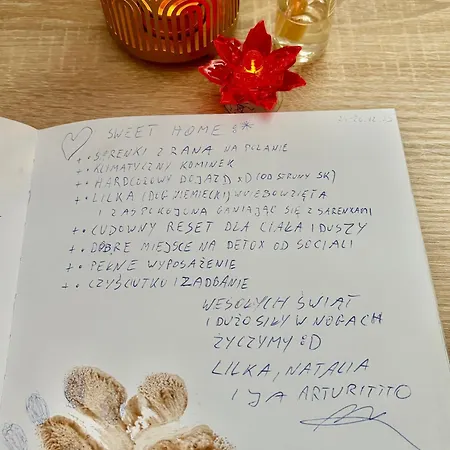 SWEET HOME :*
+ • SARENKI Z RANA NA POLANIE
+ • KLIMATYCZNY KOMINEK
+ • HARDCOROWY DOJAZD XD (OD STRONY SK)
+ • LILKA (DOG NIEMIECKI) WNIEBOWZIĘTA
I ZASPOKOJONA GANIAJĄC SIĘ Z SARENKAMI
+ • CUDOWNY RESET DLA CIAŁA I DUSZY
+ • DOBRE MIEJSCE NA DETOX OD SOCIALI
+ • PEŁNE WYPOSAŻENIE
+ • CZYŚCIUTKO I ZADBANIE
WESOŁYCH ŚWIĄT
I DUŻO SIŁY W NOGACH
ŻYCZYMY :D
LILKA, NATALIA
I JA ARTURITITO